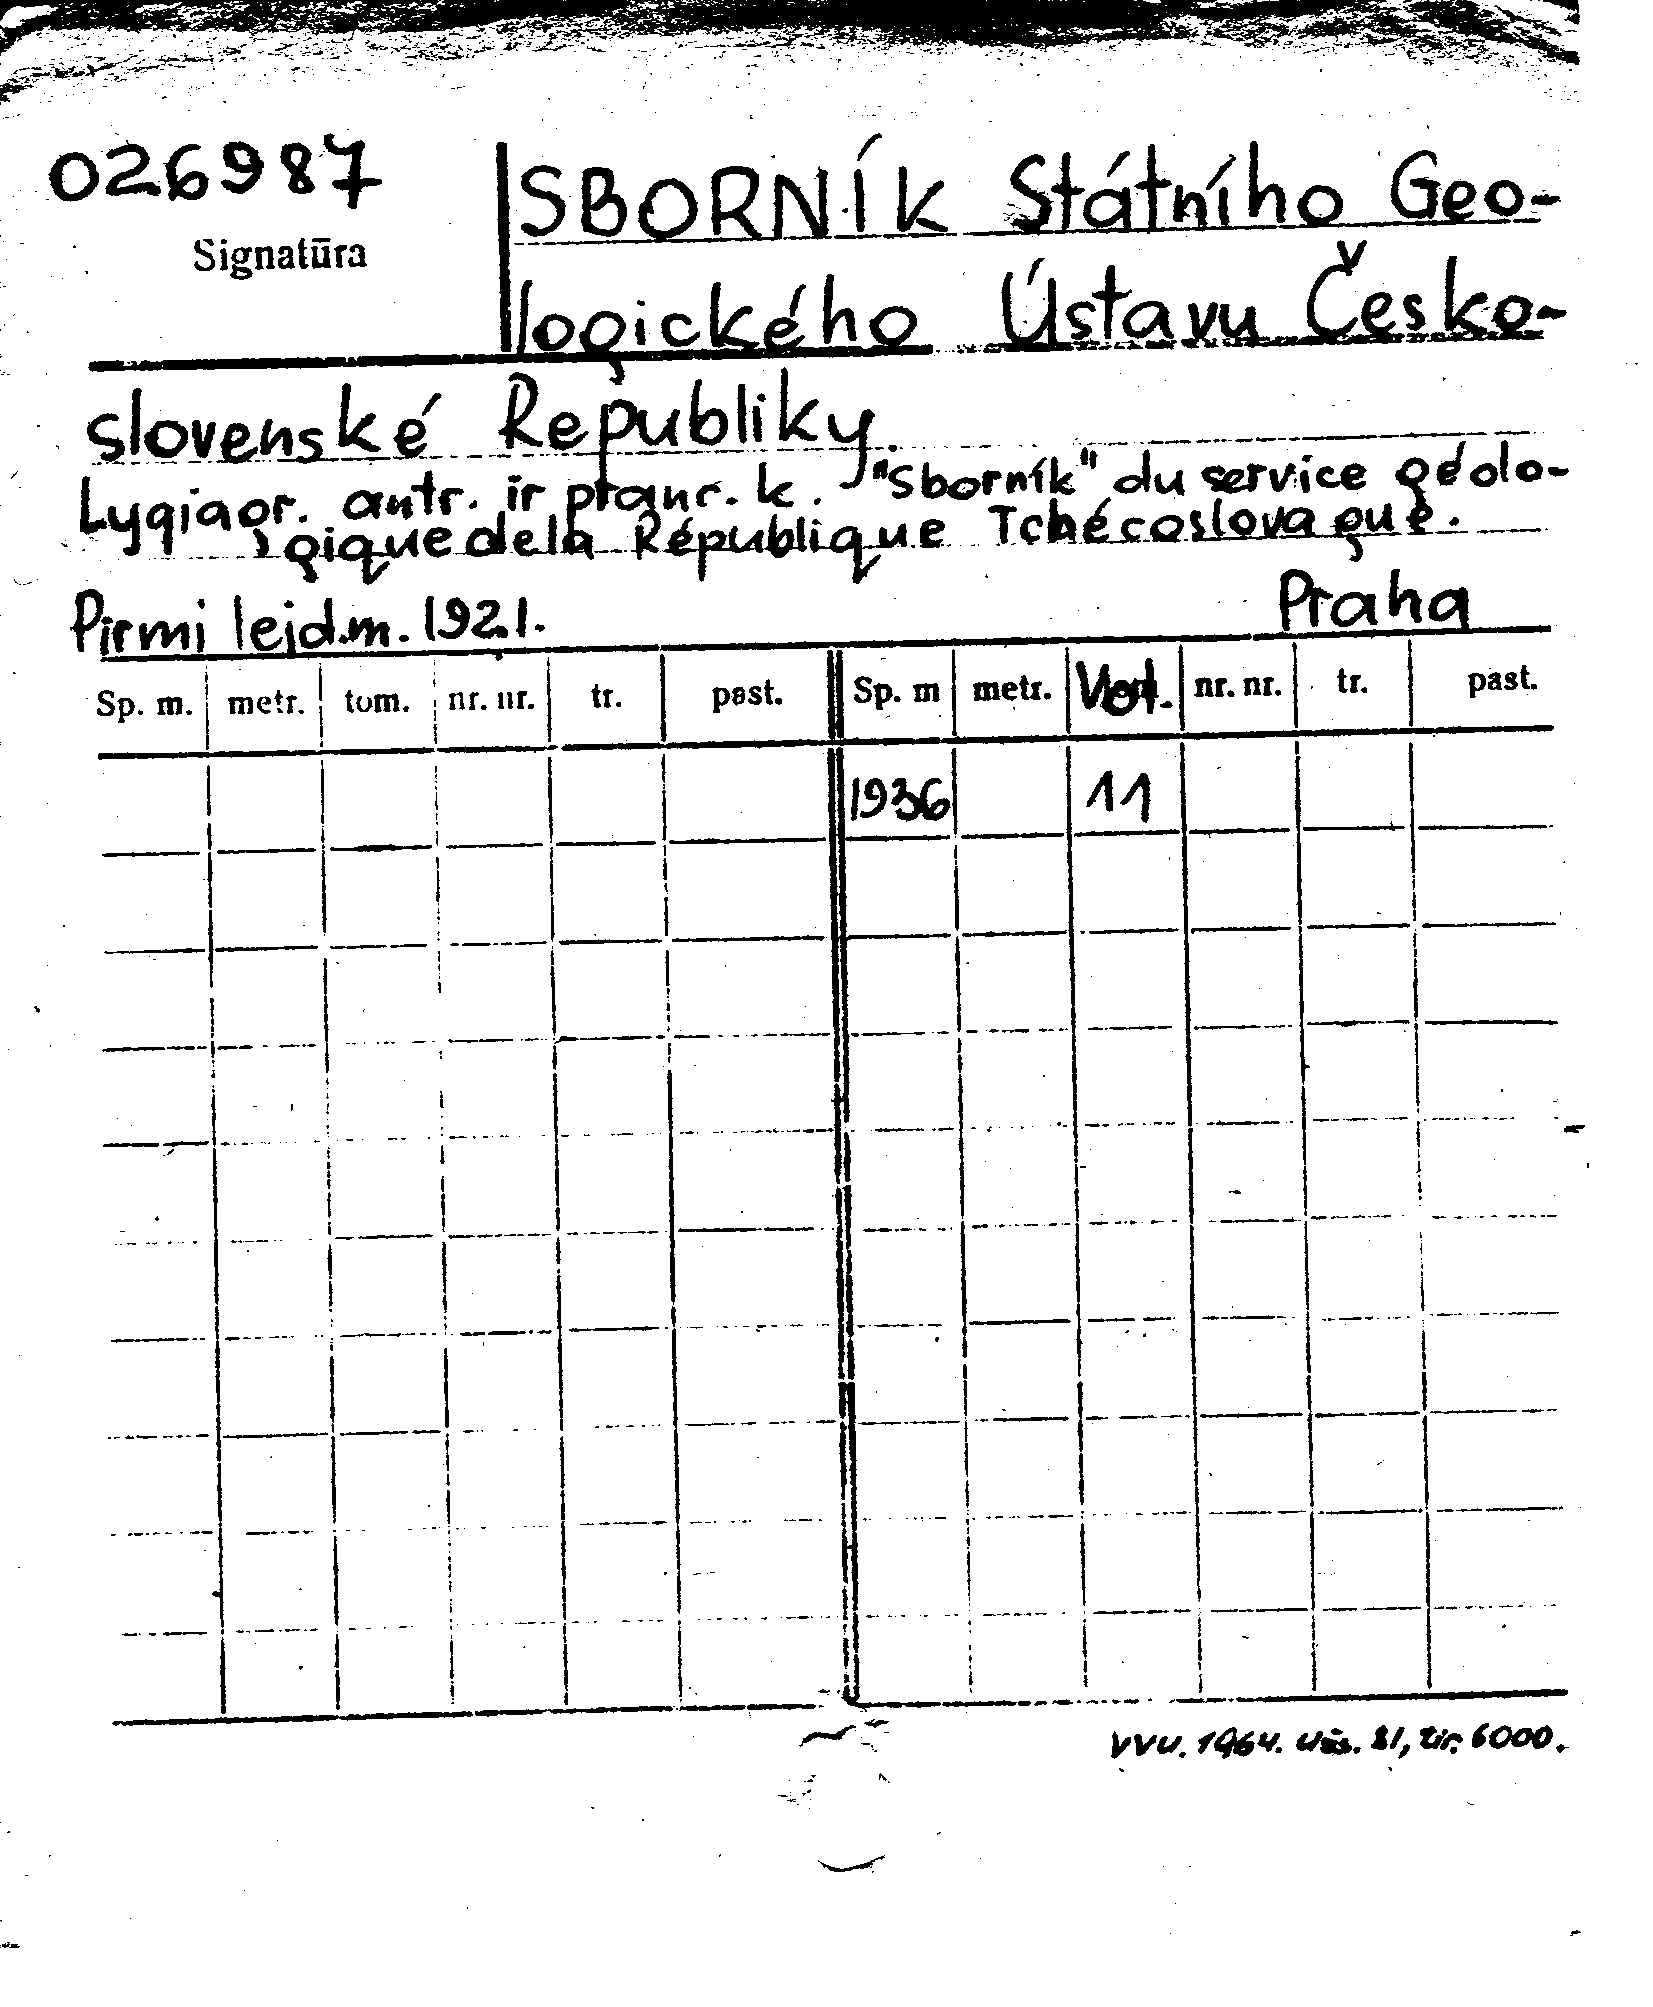 026987
Signatūra
SBORNÍK Státního Geo-
logického Ústavu Česko-
slovenské Republiky.
Lygiagr. antr. ir pranc. k. "Sborník" du service géolo-
gique de la République Tchécoslovaque.
Pirmi leid.m. 1921. Praha
Sp. m. metr. tom. nr. nr. tr. past. Sp. m metr. Vol. nr. nr. tr. past.
1936 11
VVU. 1964. Užs. 81, tir. 6000.